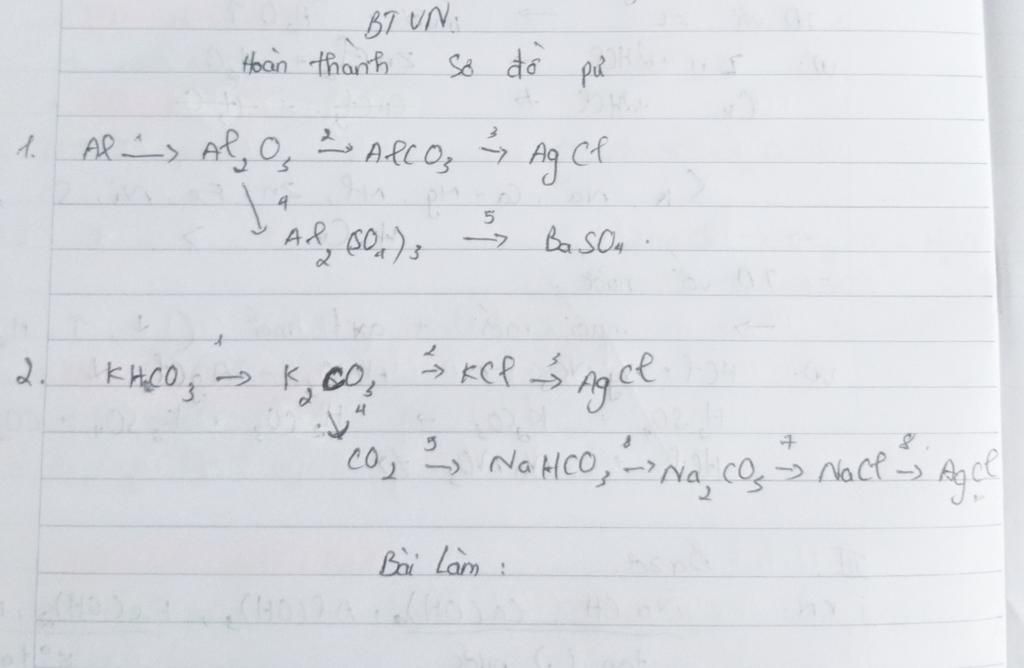 BTVN:
Hoàn thành sơ đồ pứ
1. Al →¹ Al₂O₃ →² AlCO₃ →³ AgCl
↘⁴ Al₂(SO₄)₃ →⁵ BaSO₄.
2. KHCO₃ →¹ K₂CO₃ →² KCl →³ AgCl
↘⁴
CO₂ →⁵ NaHCO₃ →⁶ Na₂CO₃ →⁷ NaCl →⁸ AgCl
Bài làm: